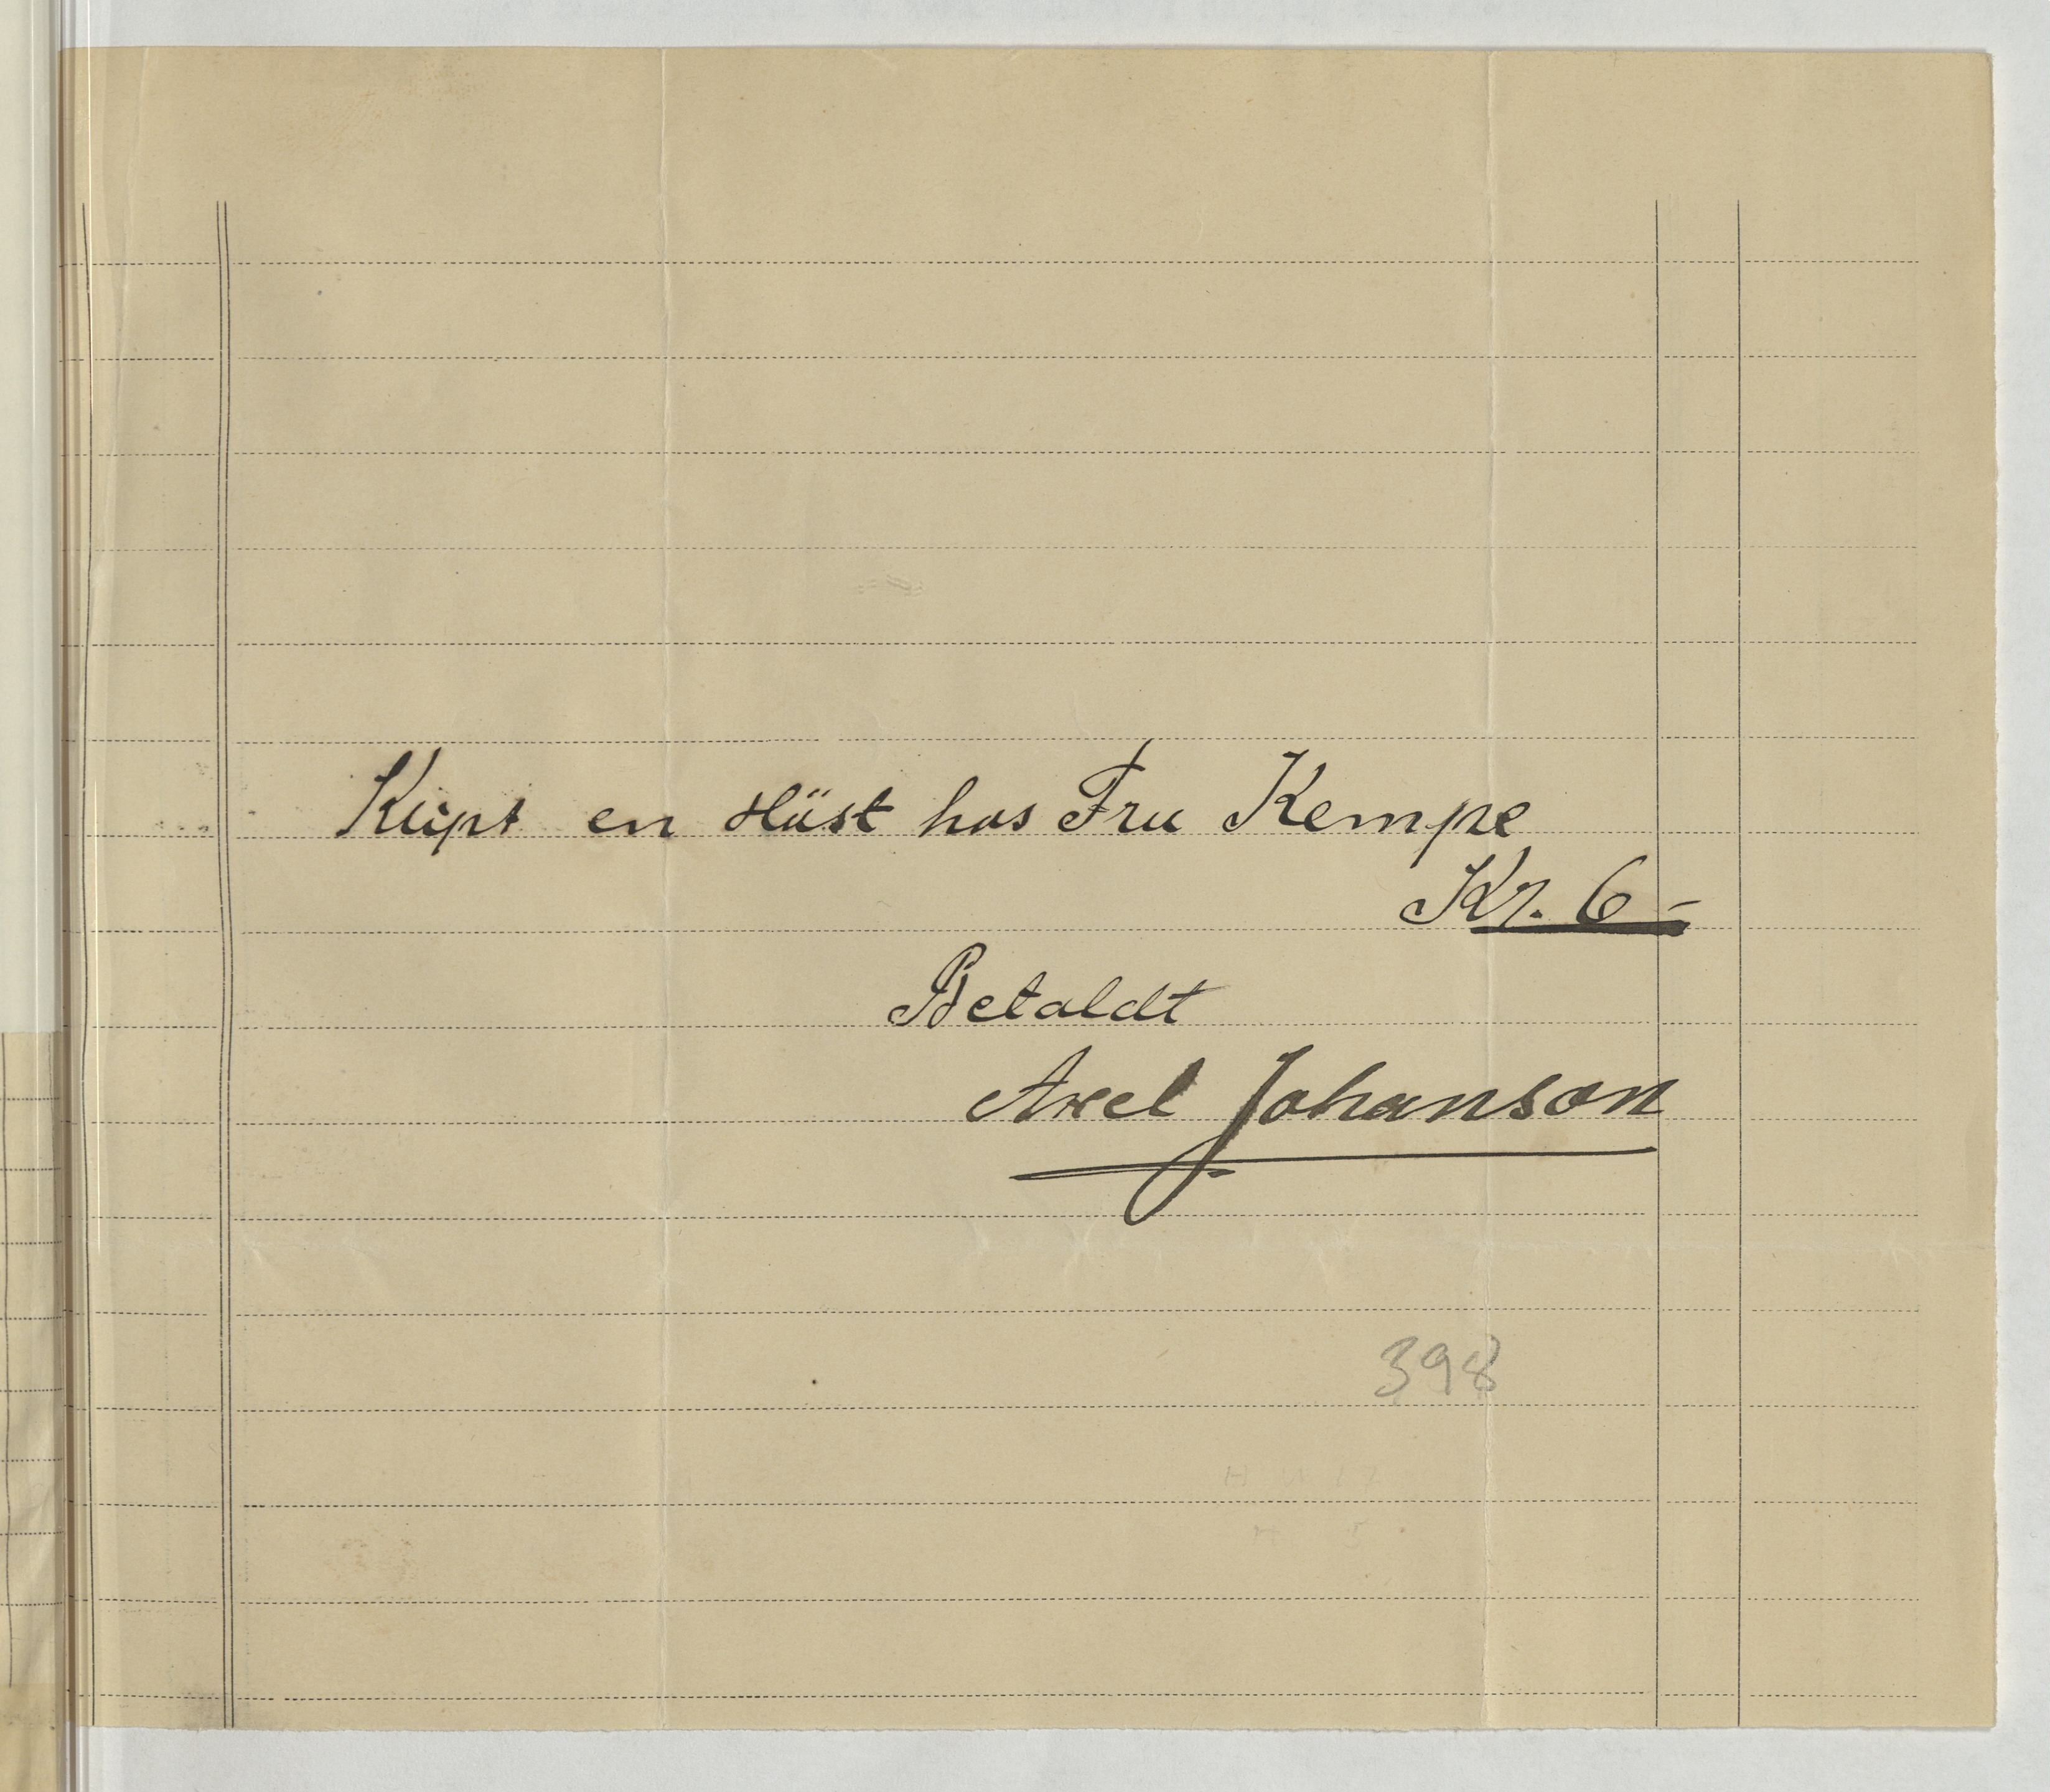 Klipt en Häst hos Fru Kempe
Kr. 6-
Betaldt
Axel Johanson
398